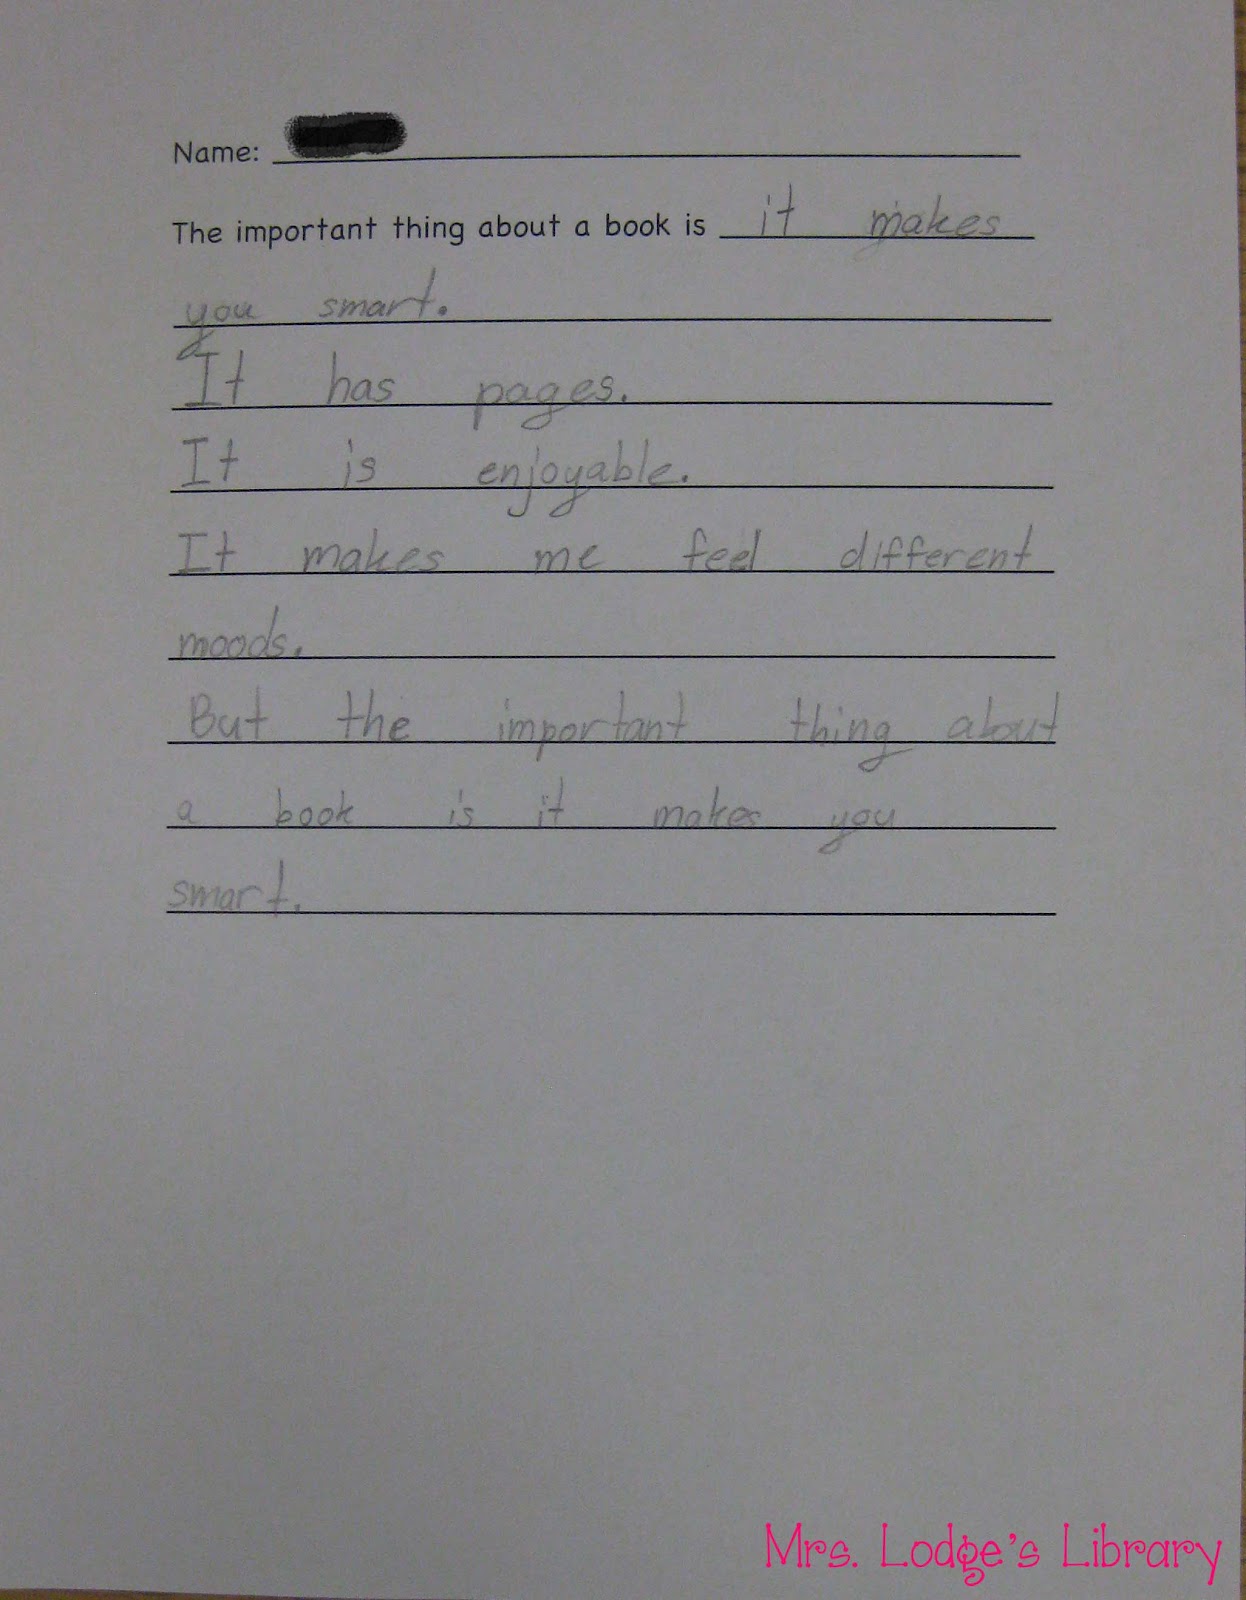 Name:
The important thing about a book is it makes
you smart.
It has pages.
It is enjoyable.
It makes me feel different
moods.
But the important thing about
a book is it makes you
smart.
Mrs. Lodge's Library